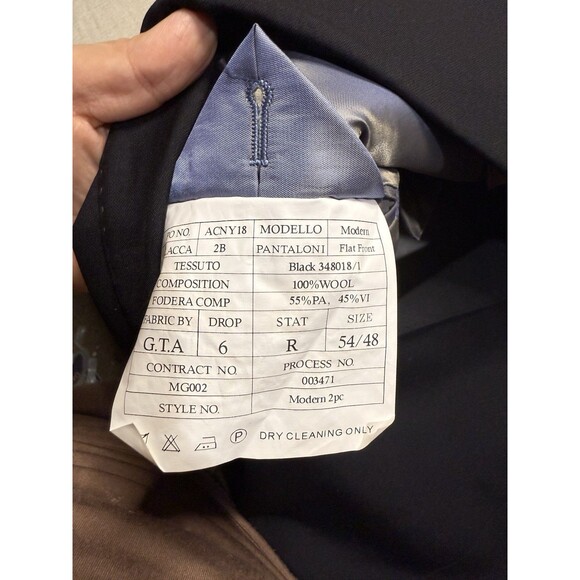 PO NO. ACNY18 MODELLO Modern
ACCA 2B PANTALONI Flat Front
TESSUTO Black 348018/1
COMPOSITION 100%WOOL
FODERA COMP 55%PA, 45%VI
FABRIC BY DROP STAT SIZE
G.T.A 6 R 54/48
CONTRACT NO. PROCESS NO.
MG002 003471
STYLE NO. Modern 2pc
P DRY CLEANING ONLY